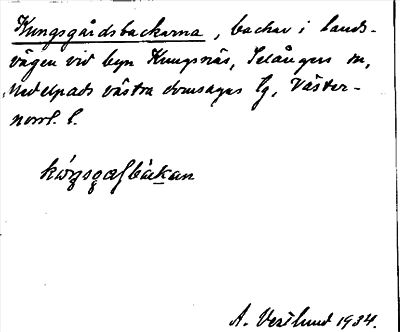 Kungsgårdsbackarna, backar i lands-
vägen vid byn Kungsnäs, Selångers sn,
Medelpads västra domsagas tg, Väster-
norrl. l.
kóŋsgaſbàckan
A. Vestlund 1934.